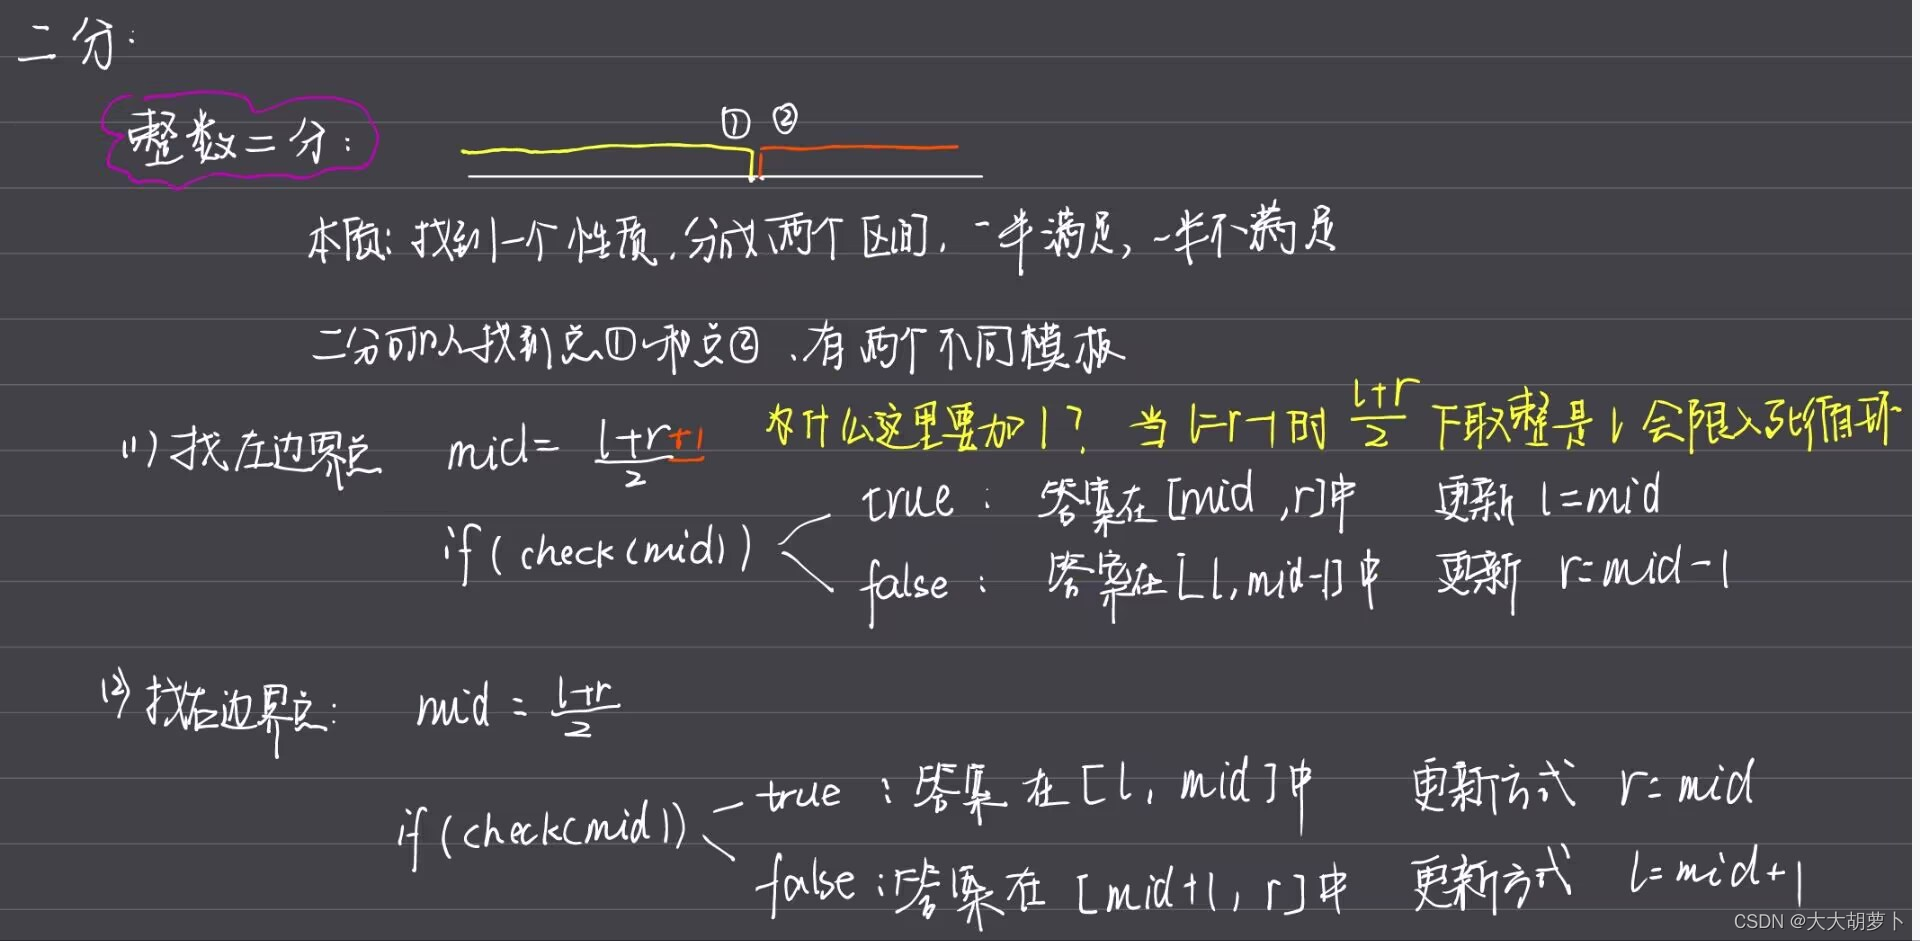 二分:
整数二分:
① ②
本质: 找到一个性质,分成两个区间,一半满足,一半不满足
二分可以找到点①和点②、有两个不同模板
(1) 找左边界点 mid = (l+r+1)/2 为什么这里要加1? 当l=r-1时 (l+r)/2 下取整是l会陷入死循环
if(check(mid)) true: 答案在[mid,r]中 更新 l=mid
false: 答案在[l,mid-1]中 更新 r=mid-1
(2) 找右边界点: mid = (l+r)/2
if(check(mid)) true: 答案在[l,mid]中 更新方式 r=mid
false: 答案在[mid+1,r]中 更新方式 l=mid+1
CSDN @大大胡萝卜